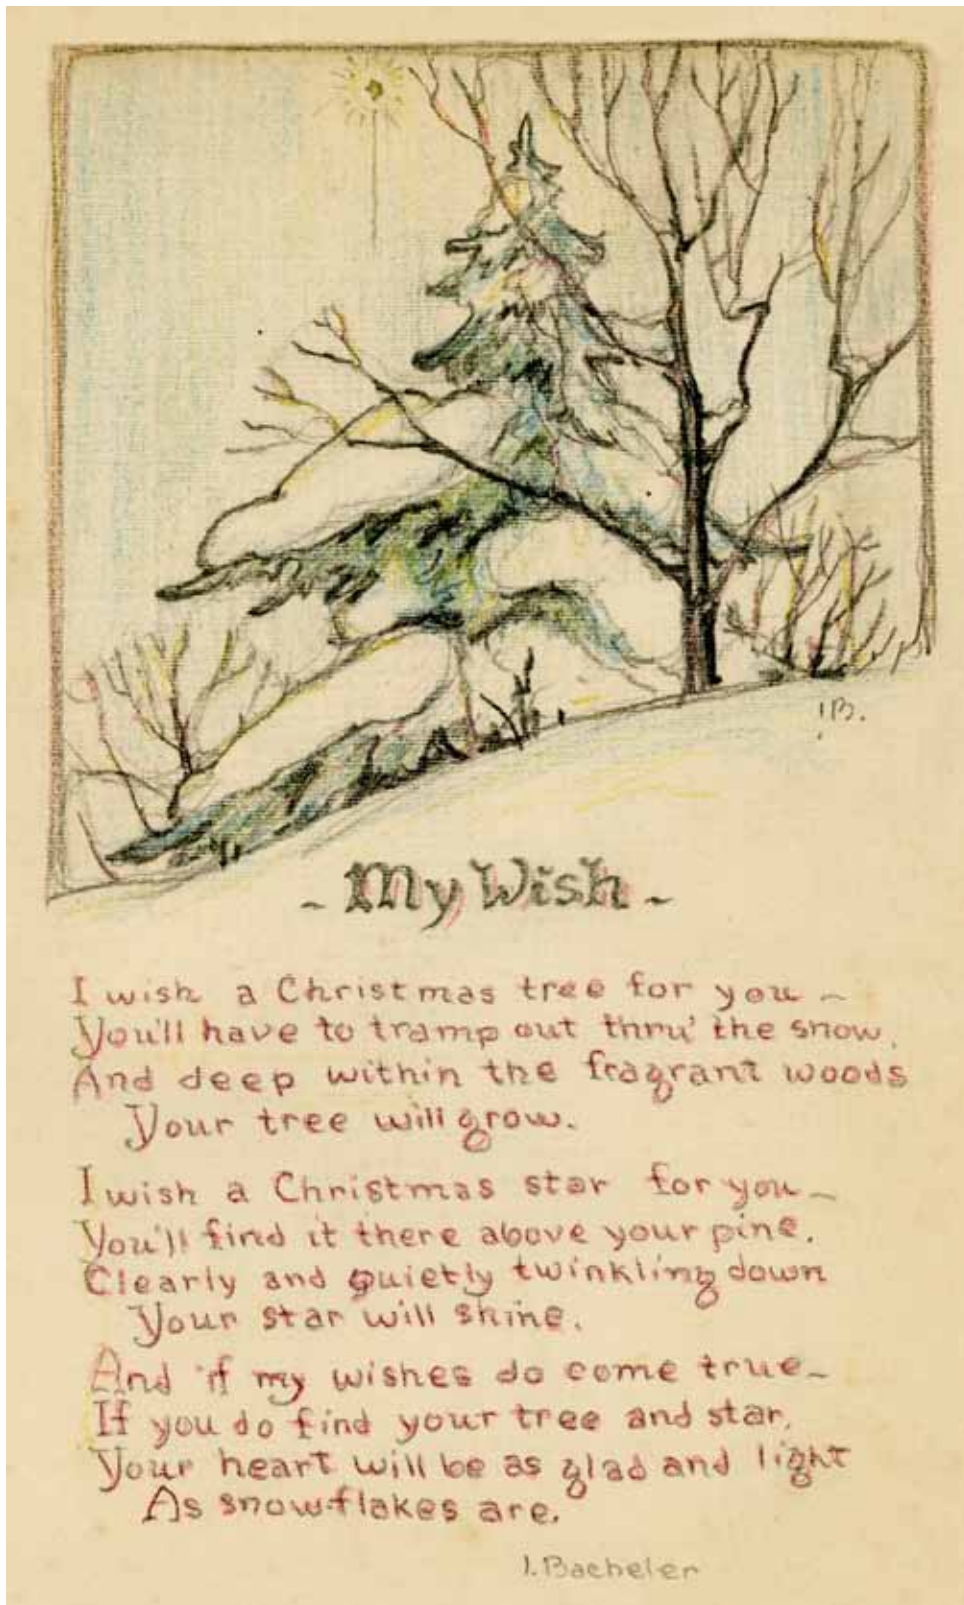 I.B.
- My Wish -
I wish a Christmas tree for you -
You'll have to tramp out thru' the snow,
And deep within the fragrant woods
Your tree will grow.
I wish a Christmas star for you -
You'll find it there above your pine.
Clearly and quietly twinkling down
Your star will shine.
And if my wishes do come true -
If you do find your tree and star,
Your heart will be as glad and light
As snowflakes are.
I. Bacheler